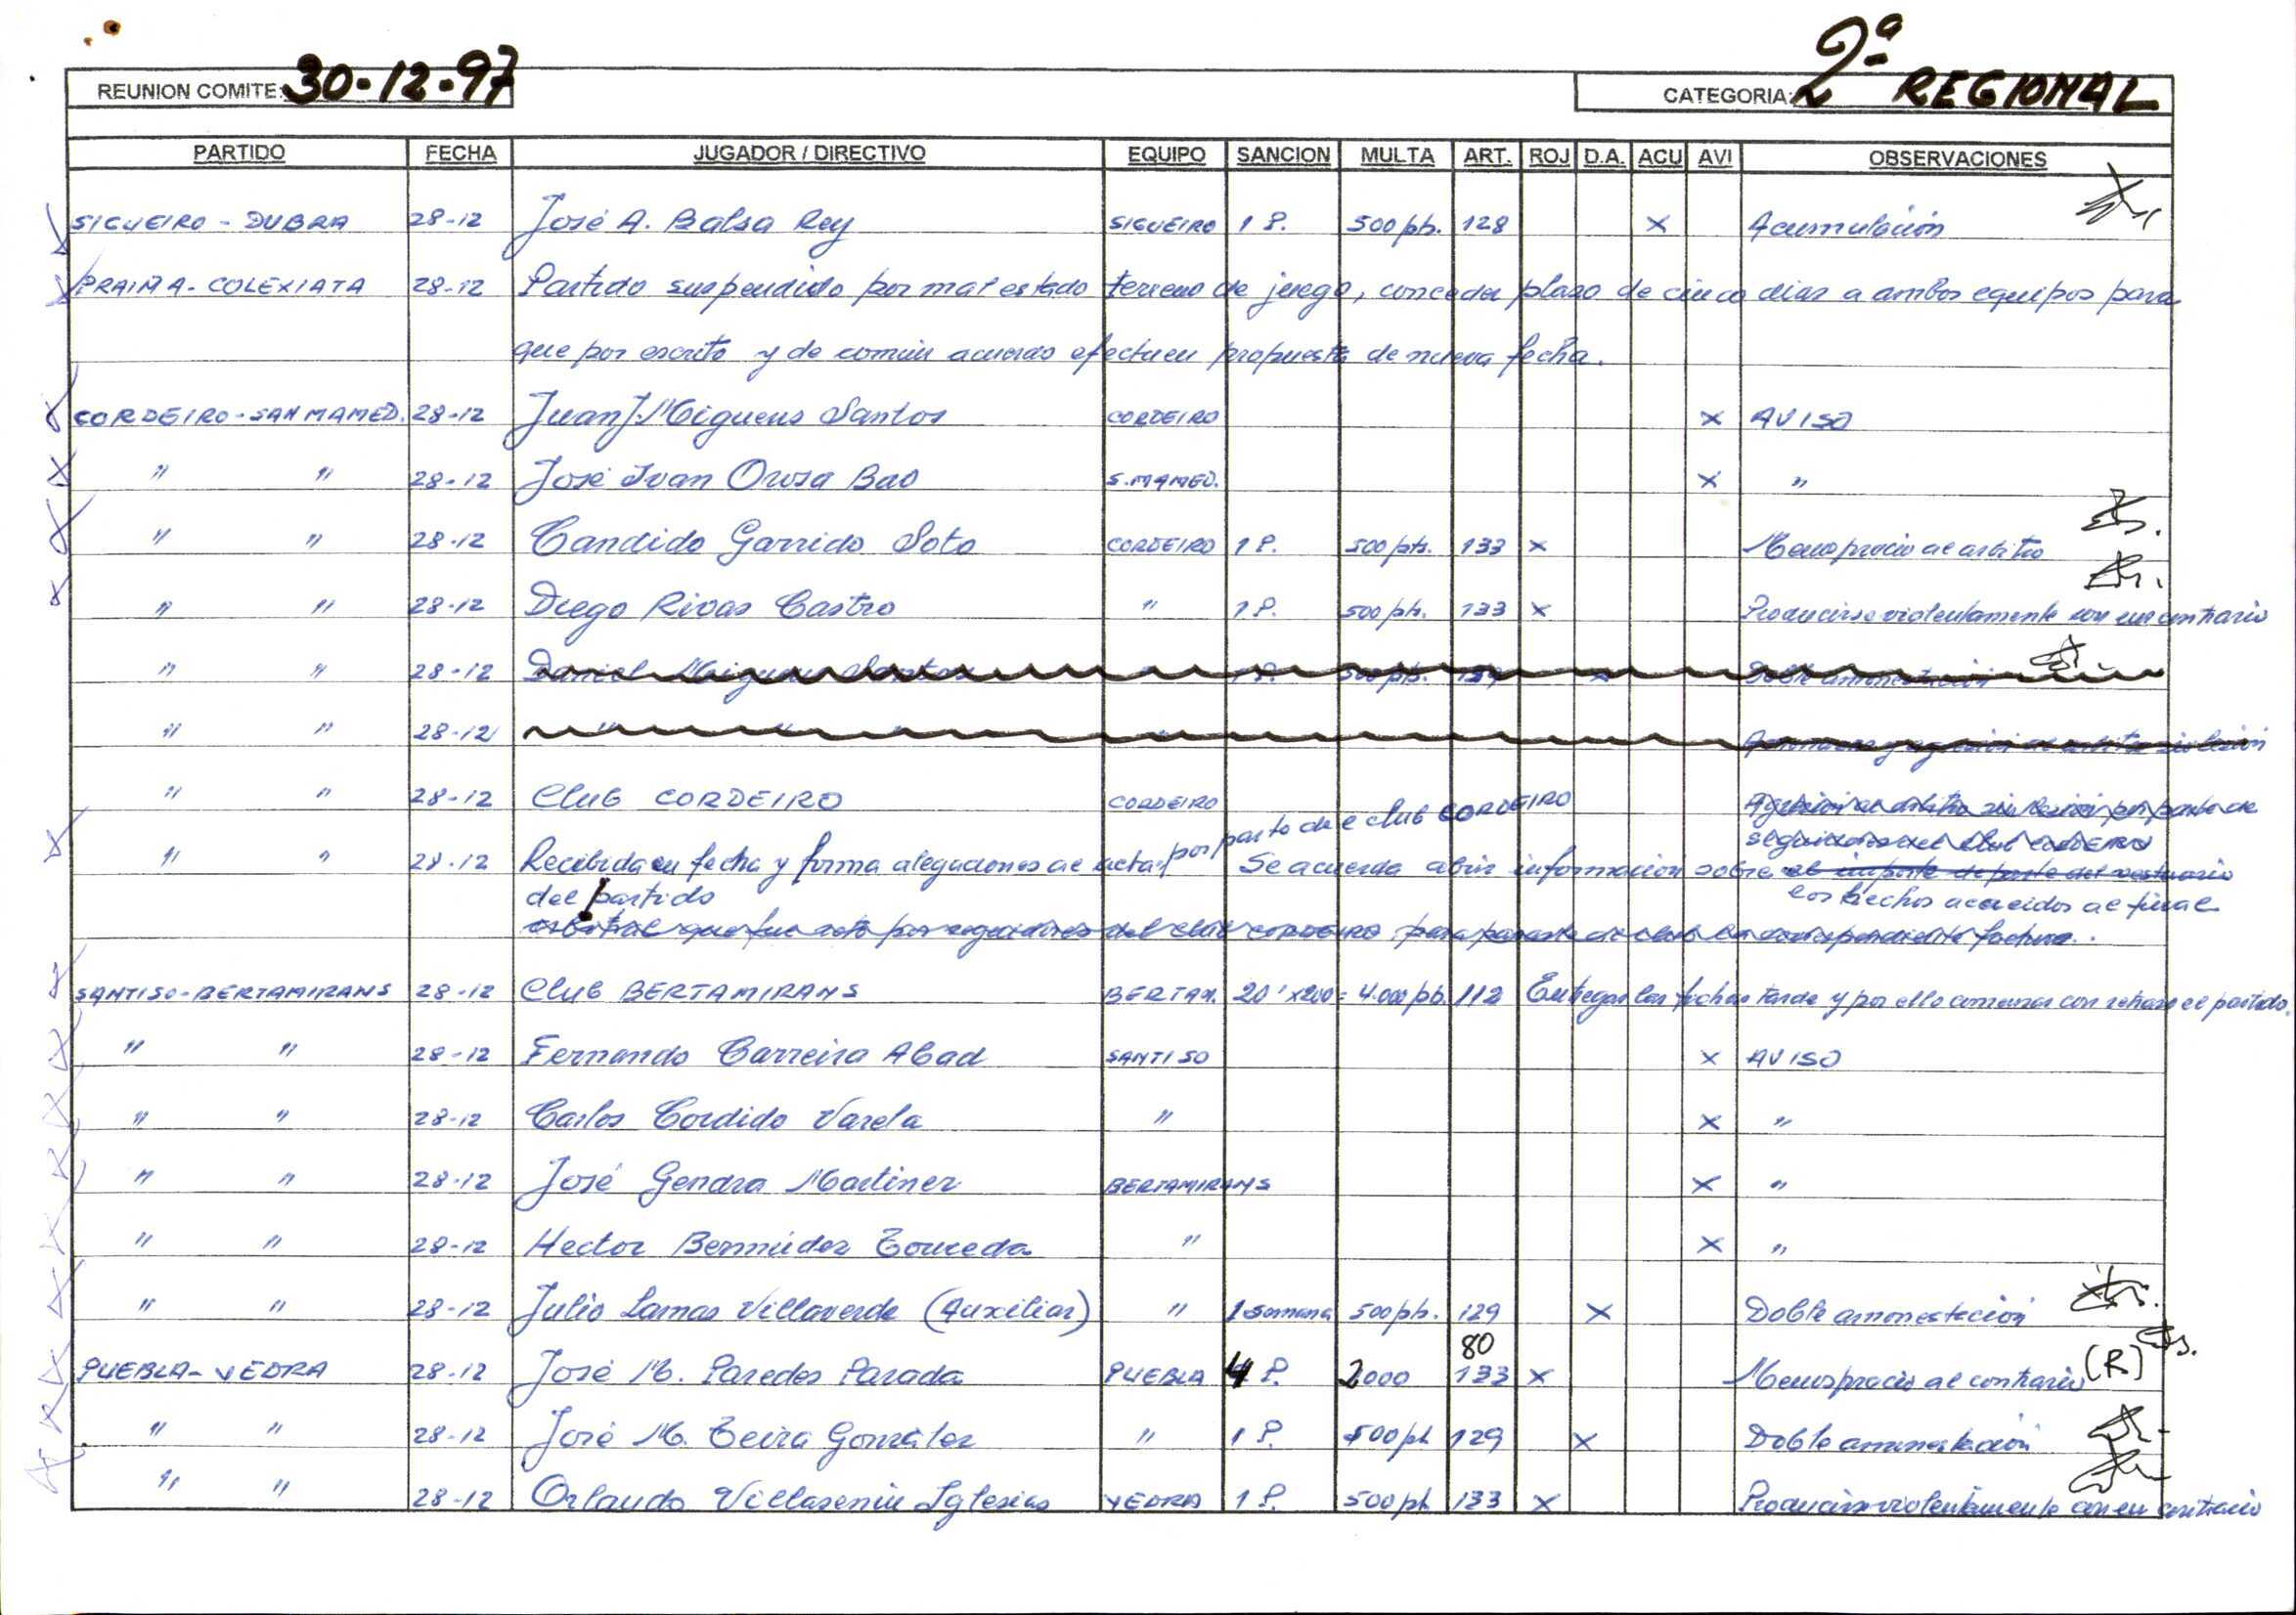 REUNION COMITE: 30-12-97
CATEGORIA: 2ª REGIONAL
PARTIDO FECHA JUGADOR / DIRECTIVO EQUIPO SANCION MULTA ART. ROJ D.A. ACU AVI OBSERVACIONES
SIGUEIRO - DUBRA 28-12 José A. Balsa Rey SIGUEIRO 1 P. 500 pts. 128 x Acumulación
PRAIÑA - COLEXIATA 28-12 Partido suspendido por mal estado terreno de juego, conceder plazo de cinco dias a ambos equipos para
que por escrito y de común acuerdo efectuen propuesta de nueva fecha.
CORDEIRO - SAN MAMED. 28-12 Juan J. Miguens Santos CORDEIRO x AVISO
" " 28-12 José Ivan Orosa Bao S. MAMED. x "
" " 28-12 Candido Garrido Soto CORDEIRO 1 P. 500 pts. 133 x Menosprecio al arbitro
" " 28-12 Diego Rivas Castro " 1 P. 500 pts. 133 x Producirse violentamente con un contrario
" " 28-12 Daniel Miguens Santos 1 P. 500 pts. 129 x Doble amonestación
" " 28-12 " " "
" " 28-12 Club CORDEIRO CORDEIRO Agresion al arbitro sin lesión por parte de
seguidores del Club CORDEIRO
" " 28-12 Recibida en fecha y forma alegaciones al acta por parte del club CORDEIRO Se acuerda abrir información sobre el importe de parte del vestuario
del partido los hechos acaecidos al final
arbitral que fue roto por seguidores del club CORDEIRO, para
SANTISO - BERTAMIRANS 28-12 Club BERTAMIRANS BERTAM. 20' x 200 = 4.000 pts. 112 Entregar las fichas tarde y por ello comenzar con retraso el partido.
" " 28-12 Fernando Carreira Abad SANTISO x AVISO
" " 28-12 Carlos Cordido Varela " x "
" " 28-12 José Gendra Martinez BERTAMIRANS x "
" " 28-12 Hector Bermúdez Touceda " x "
" " 28-12 Julio Lamas Villaverde (Auxiliar) " 1 semana 500 pts. 129 x Doble amonestación
PUEBLA - VEDRA 28-12 José M. Paredes Parada PUEBLA 4 P. 2000 80 133 x Menosprecio al contrario (R)
" " 28-12 José M. Teira González " 1 P. 500 pts 129 x Doble amonestación
" " 28-12 Orlando Villasenin Iglesias VEDRA 1 P. 500 pts 133 x Producirse violentamente con un contrario